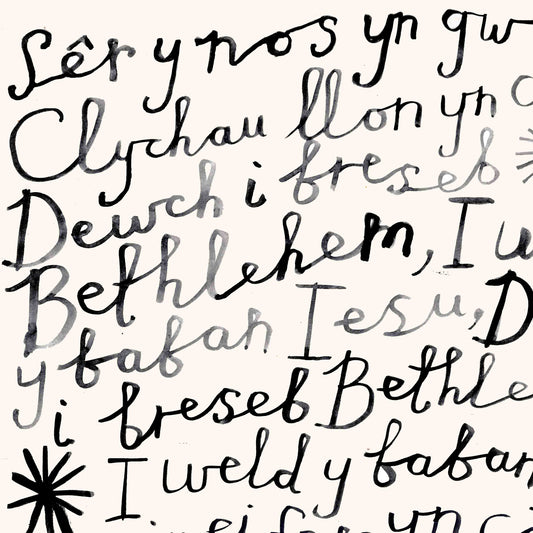 Sêr y nos yn gw
Clychau llon yn
Dewch i breseb
Bethlehem, I w
Bethlehem, I weld
y baban Iesu, D
i breseb Bethle
I weld y baban